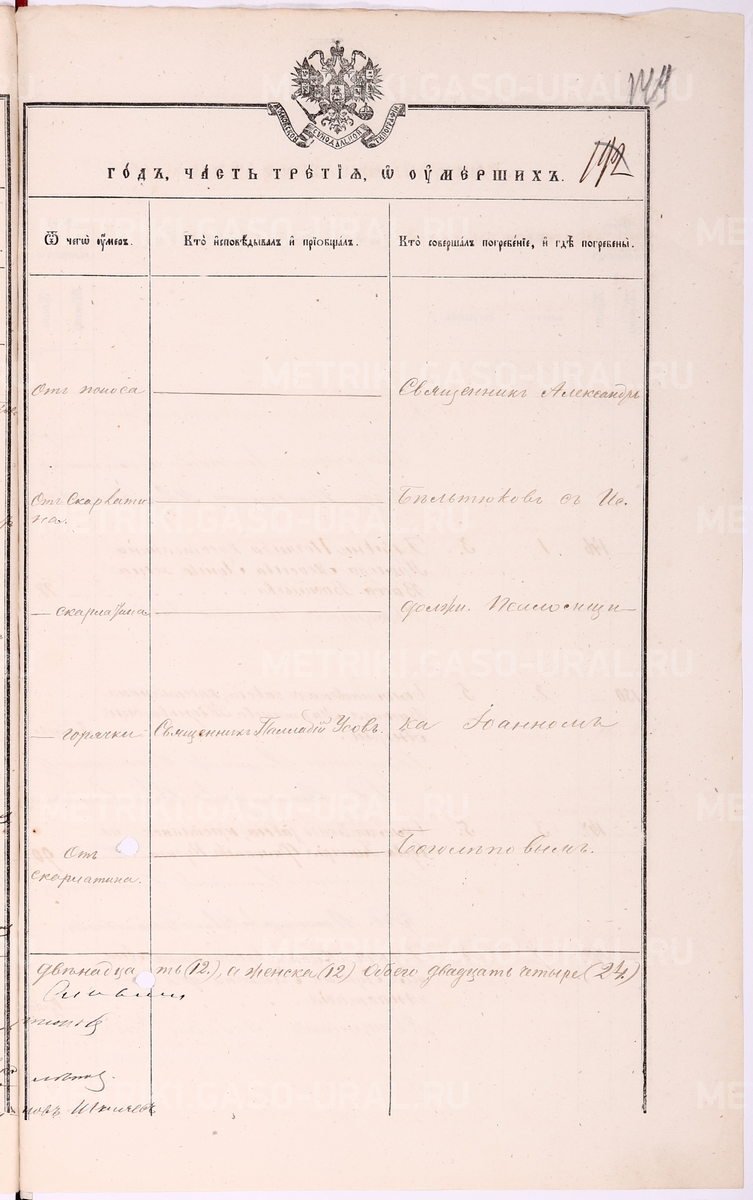 149
192
МОСКОВСКОЙ СѴНОДАЛЬНОЙ ТИПОГРАФІИ
го́дъ, ча́сть тре́тїѧ, ѡ҆ ᲂу҆ме́ршихъ.
Ѿ чегѡ̀ ᲂу҆́меръ.
Кто̀ и҆сповѣ́дывалъ и҆ прїѡбща́лъ.
Кто̀ соверша́лъ погребе́нїе, и҆ гдѣ̀ погребены̀.
Отъ поноса
Священникъ Александръ
Отъ Скарлати
на.
Бѣльтюковъ съ Ис.
— скарлатина
должн. Псаломщи—
— горячки
Священникъ Палладій Усовъ.
ка Іоанномъ
Отъ
скарлатина.
Боголѣповымъ.
двѣнадцать (12.), а женска (12) Обего двадцать четыре (24.)
METRIKI.GASO-URAL.RU